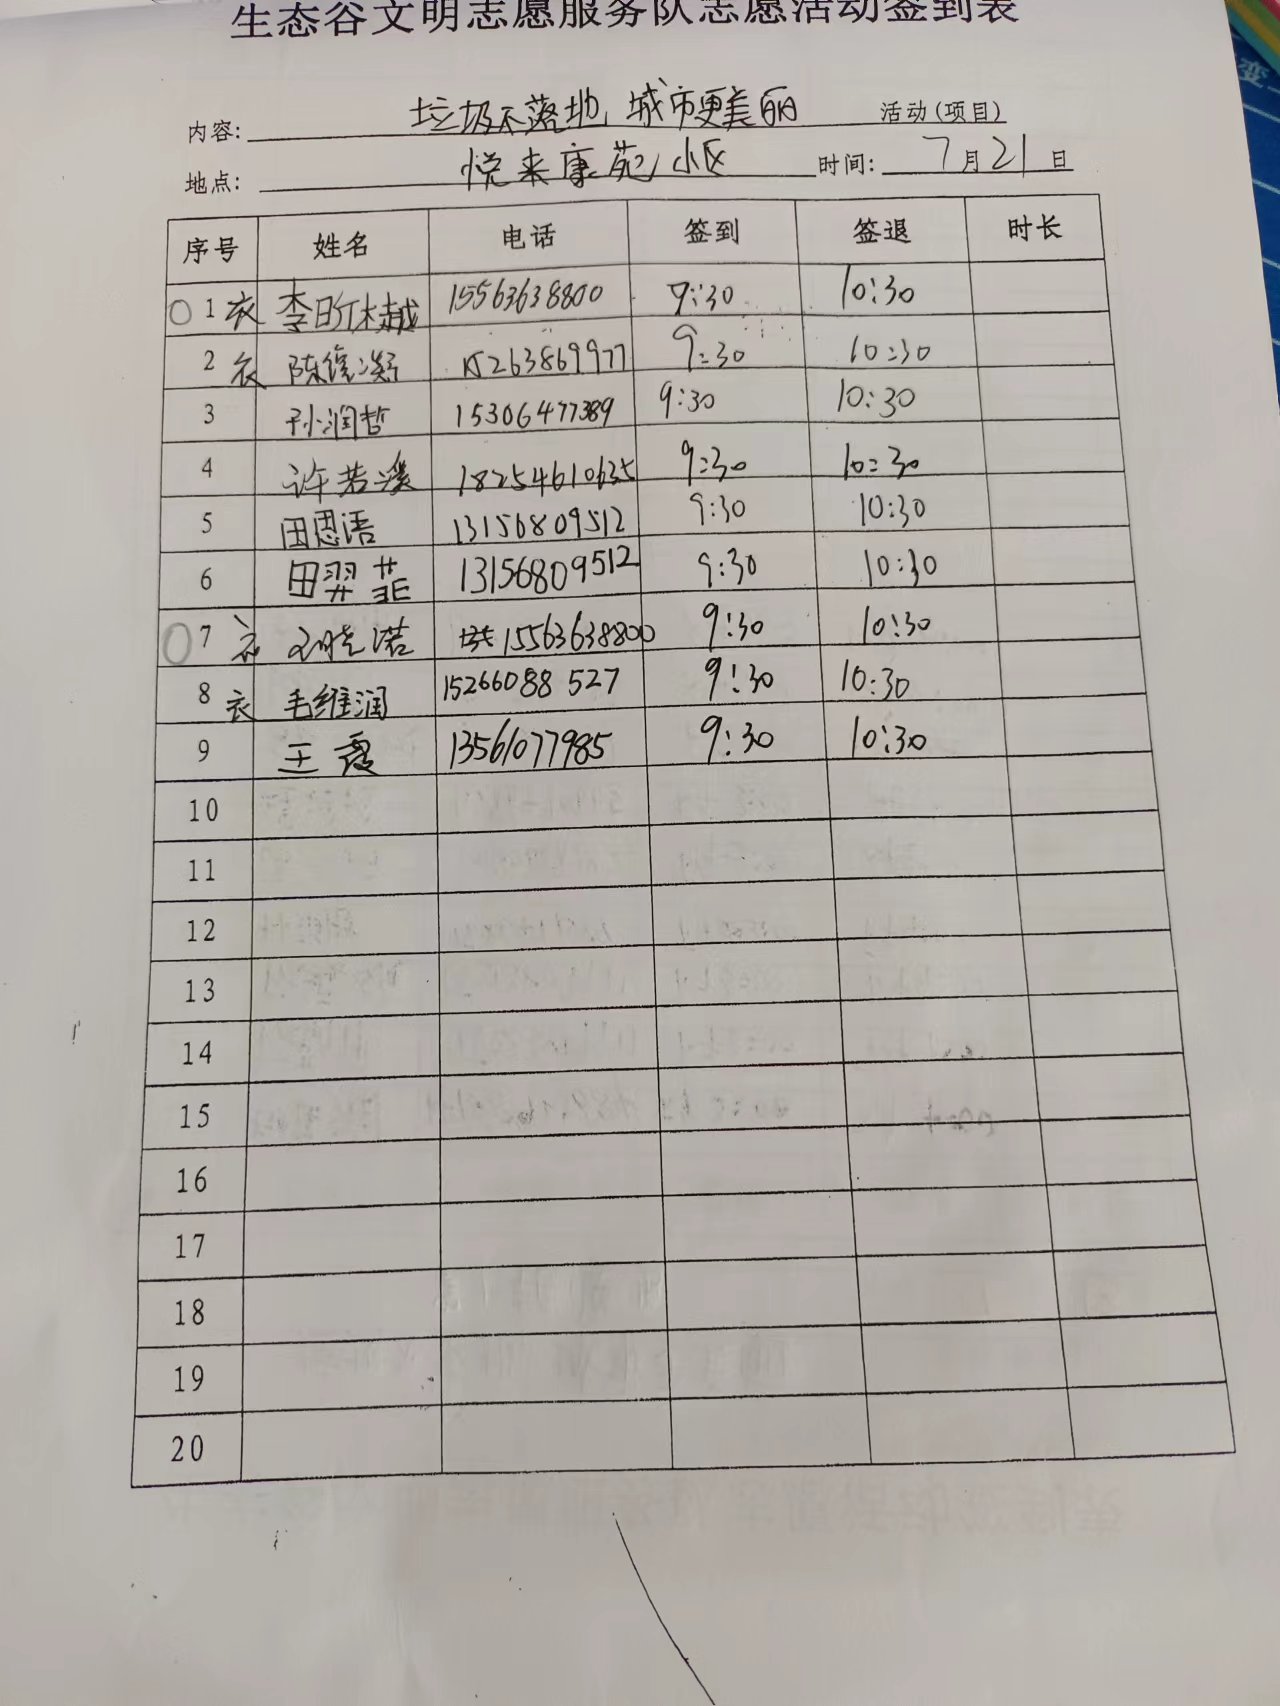 生态谷文明志愿服务队志愿活动签到表
内容: 垃圾不落地, 城市更美丽 活动(项目)
地点: 悦来康苑小区 时间: 7月21日
序号 姓名 电话 签到 签退 时长
1 衣 李昕樾 15563638800 9:30 10:30
2 衣 陈 凝 15263869977 9:30 10:30
3 孙润哲 15306477389 9:30 10:30
4 许若溪 18254610635 9:30 10:30
5 田恩语 13156809512 9:30 10:30
6 田羿菲 13156809512 9:30 10:30
7 衣 晓诺 15563638800 9:30 10:30
8 衣 毛维润 15266088527 9:30 10:30
9 王霞 13561077985 9:30 10:30
10
11
12
13
14
15
16
17
18
19
20